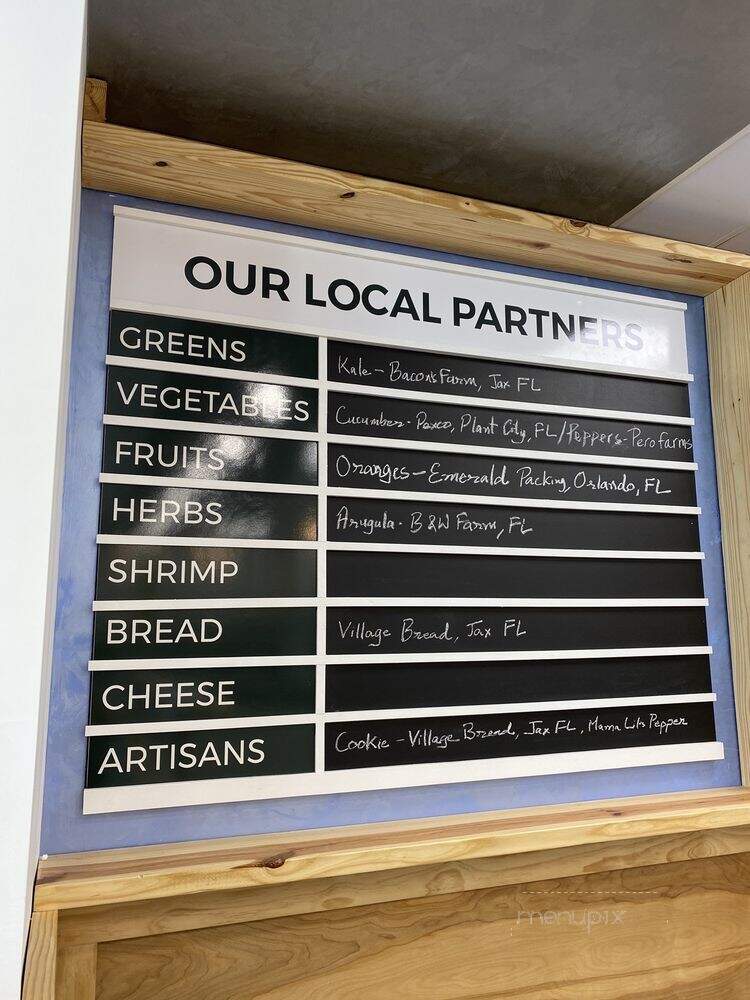 OUR LOCAL PARTNERS
GREENS Kale - Bacon's Farm, Jax FL
VEGETABLES Cucumber - Paxco, Plant City, FL / Peppers - Pero farms
FRUITS Oranges - Emerald Packing, Orlando, FL
HERBS Arugula - B&W Farm, FL
SHRIMP
BREAD Village Bread, Jax FL
CHEESE
ARTISANS Cookie - Village Bread, Jax FL, Mama Lils Pepper
menupix